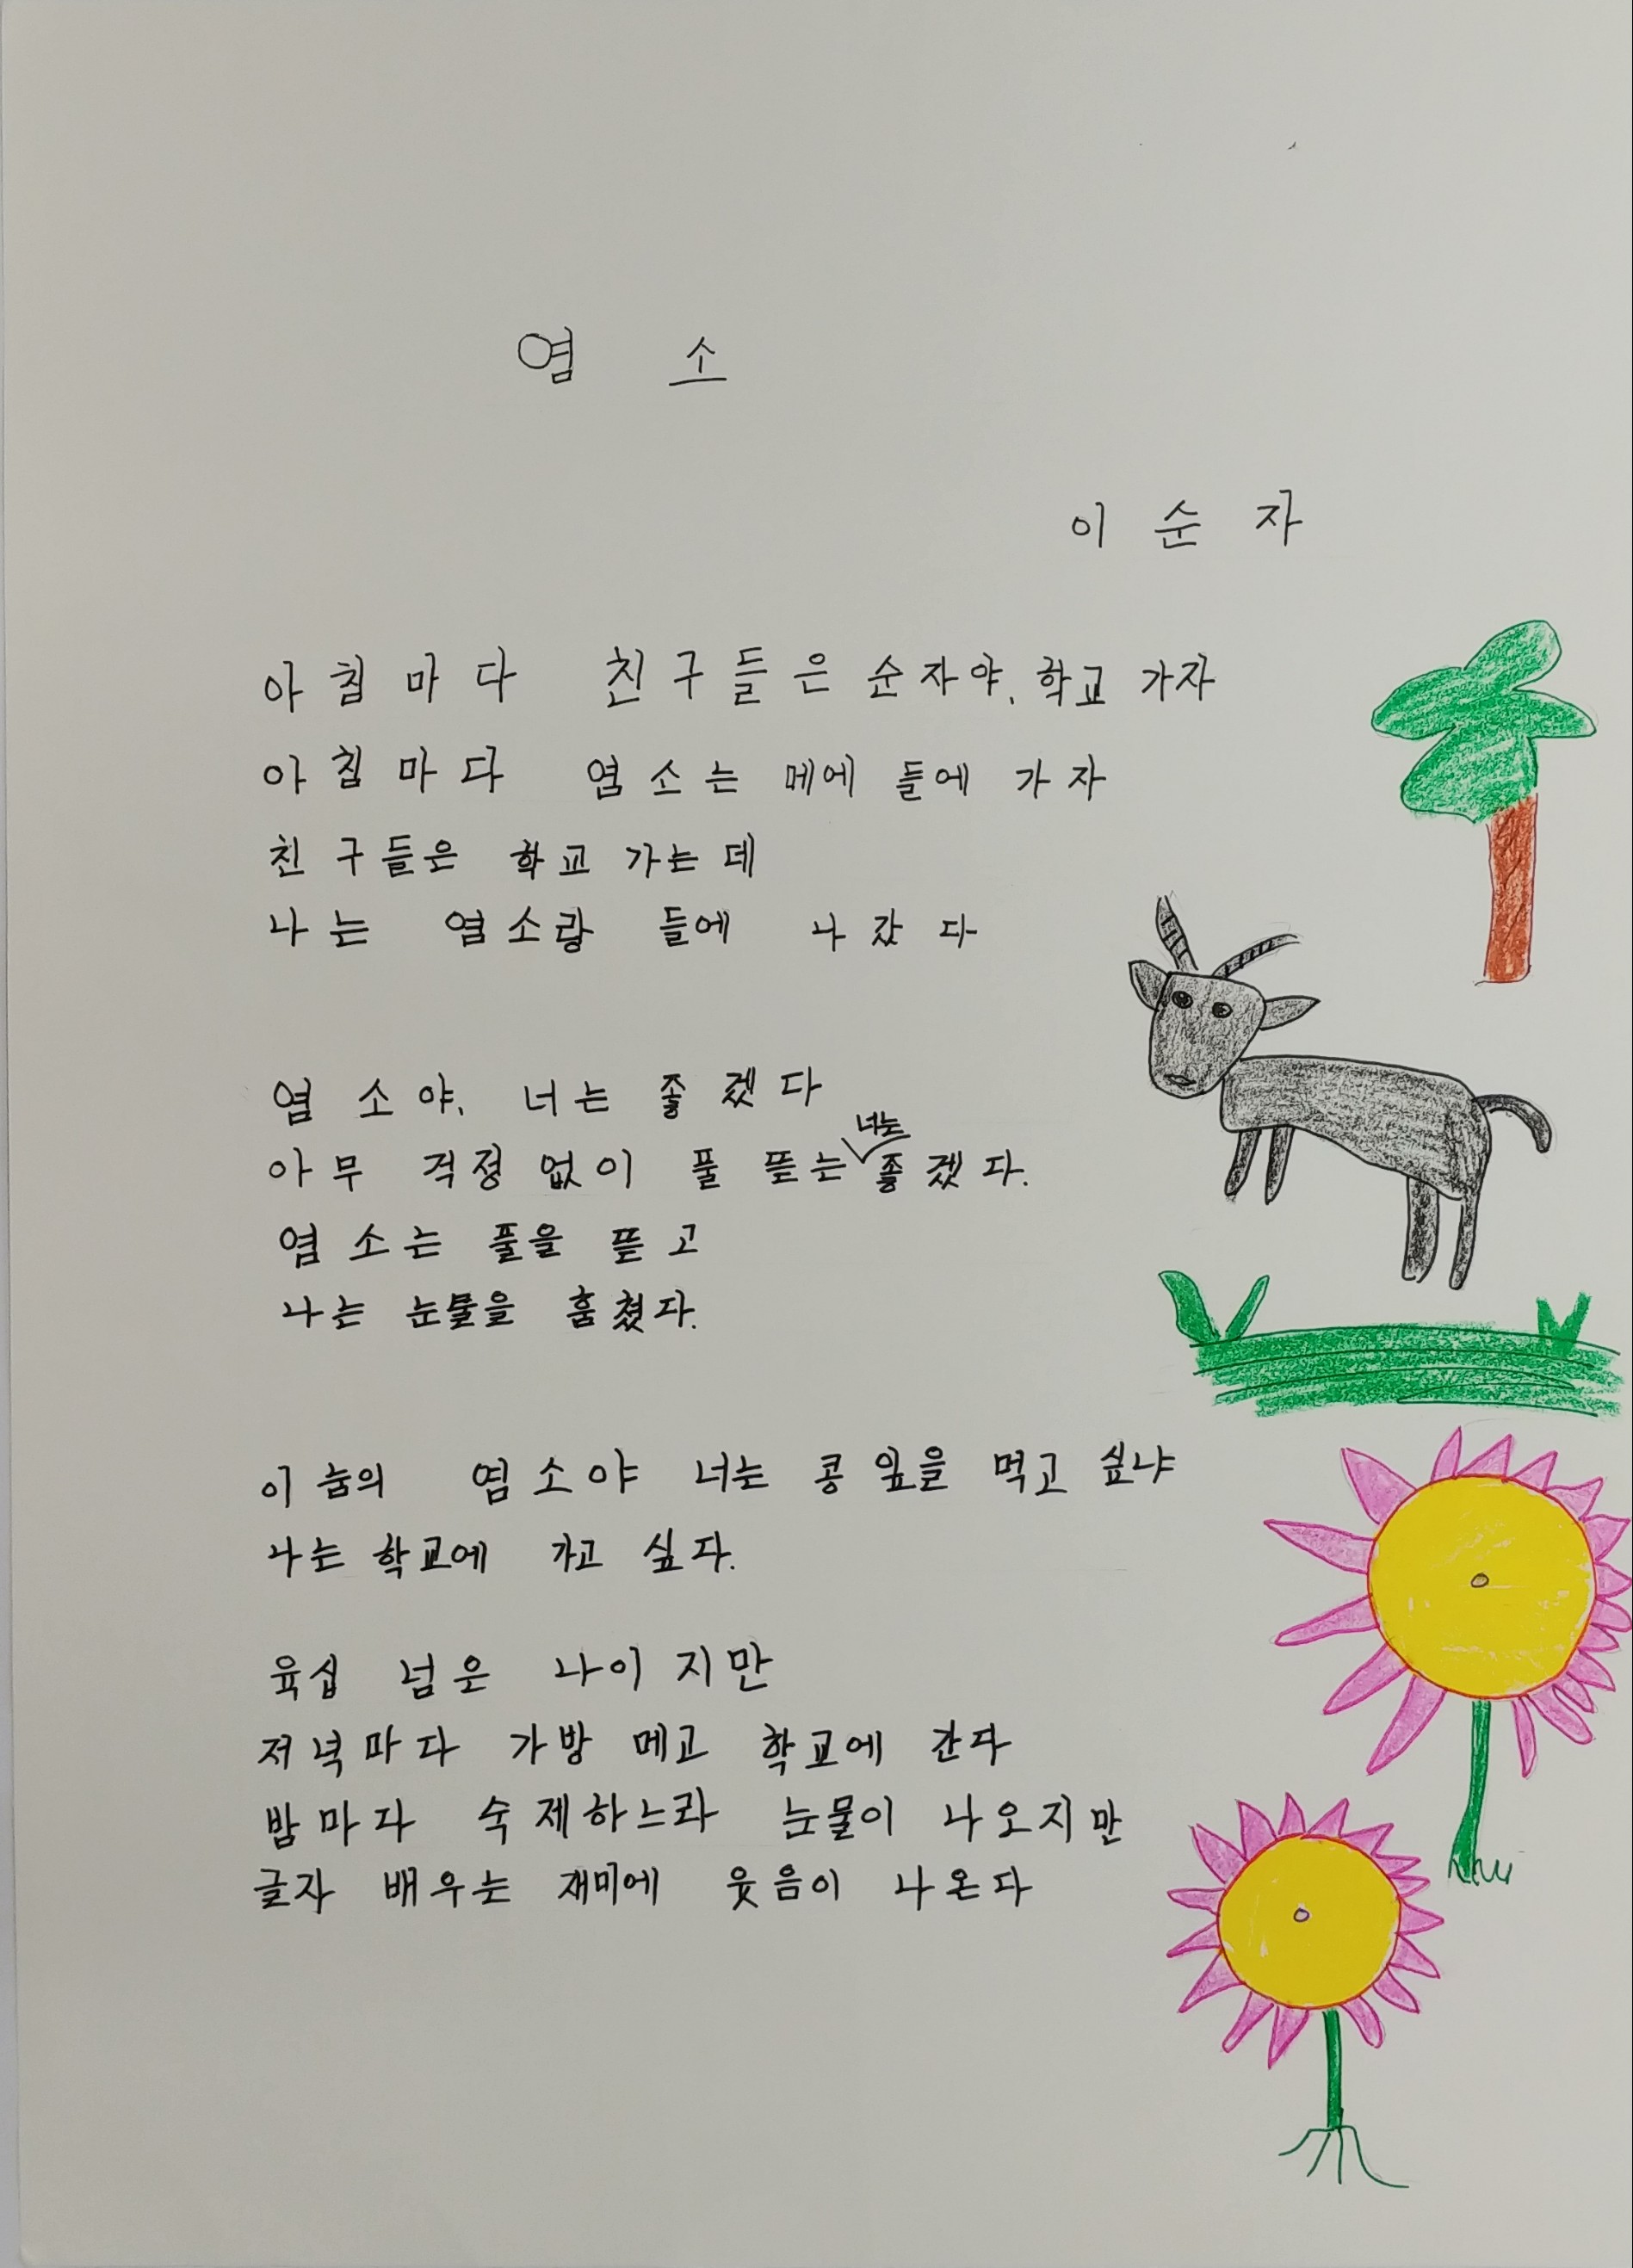 염 소
이 순 자
아침마다 친구들은 순자야, 학교 가자
아침마다 염소는 메에 들에 가자
친구들은 학교 가는데
나는 염소랑 들에 나갔다
염소야, 너는 좋겠다
아무 걱정 없이 풀 뜯는 너는 좋겠다.
염소는 풀을 뜯고
나는 눈물을 훔쳤다.
이 눔의 염소야 너는 콩잎을 먹고 싶냐
나는 학교에 가고 싶다.
육십 넘은 나이지만
저녁마다 가방 메고 학교에 간다
밤마다 숙제하느라 눈물이 나오지만
글자 배우는 재미에 웃음이 나온다